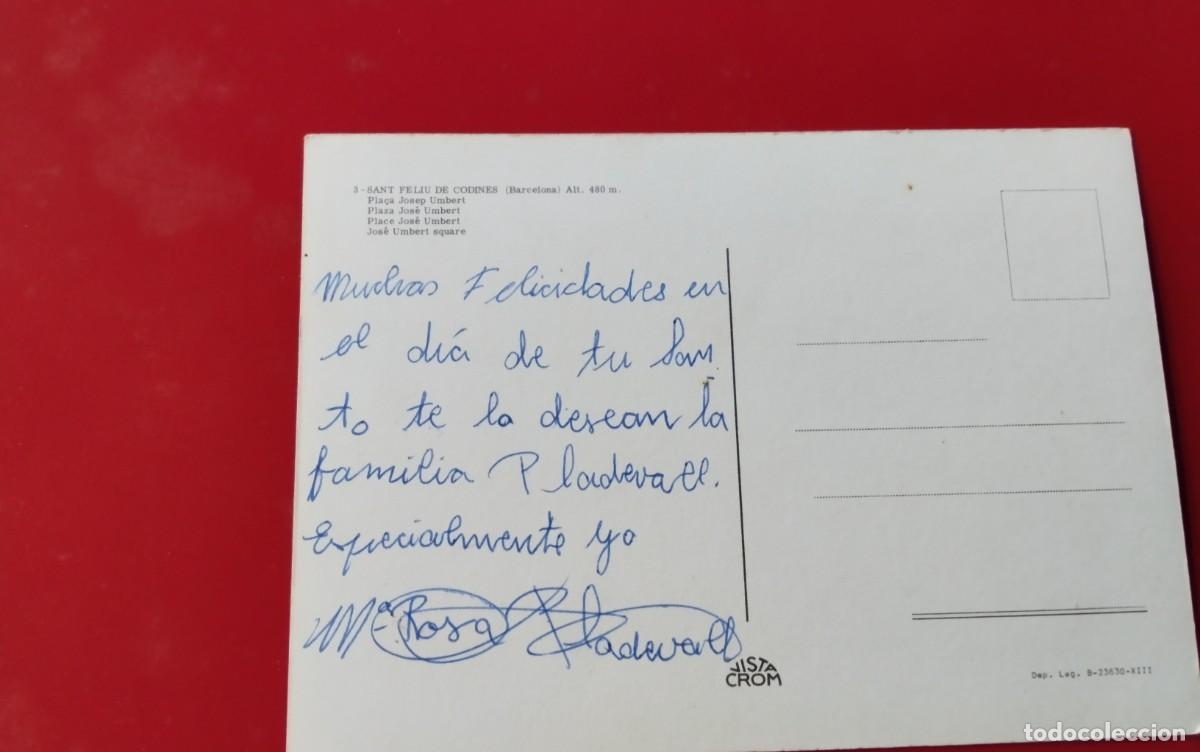 3 - SANT FELIU DE CODINES (Barcelona) Alt. 480 m.
Plaça Josep Umbert
Plaza José Umbert
Place José Umbert
José Umbert square
Muchas Felicidades en
el diá de tu San
to te la desean la
familia Pladevall.
Especialmente yo
Mª Rosa Pladevall
VISTA
CROM
Dep. Leg. B-23630-XIII
todocoleccion